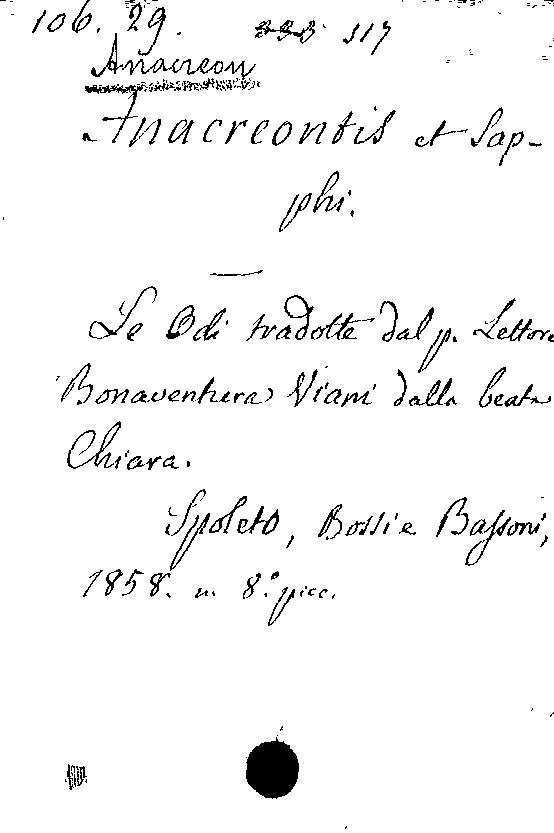 106. 29. 333 117
Anacreon
Anacreontis et Sap-
phi.
Le Odi tradotte dal p. Lettore
Bonaventura Viani dalla beata
Chiara.
Spoleto, Bossi e Bassoni,
1858. in 8.° picc.